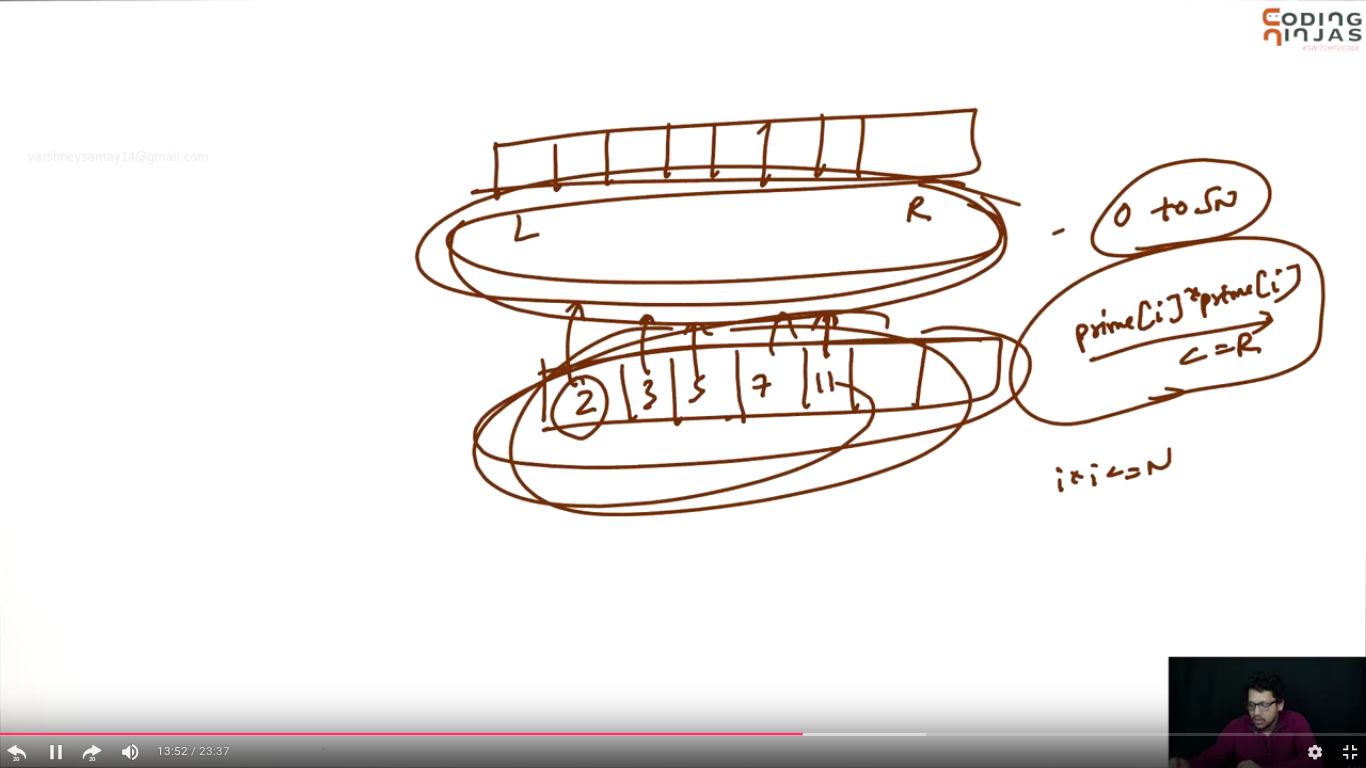 CODING
NINJAS
#SWITCHTOCODE
varshneysamay14@gmail.com
L R
0 to √N
prime[i]*prime[i]
<=R
2 3 5 7 11
i*i<=N
20 20 13:52 / 23:37